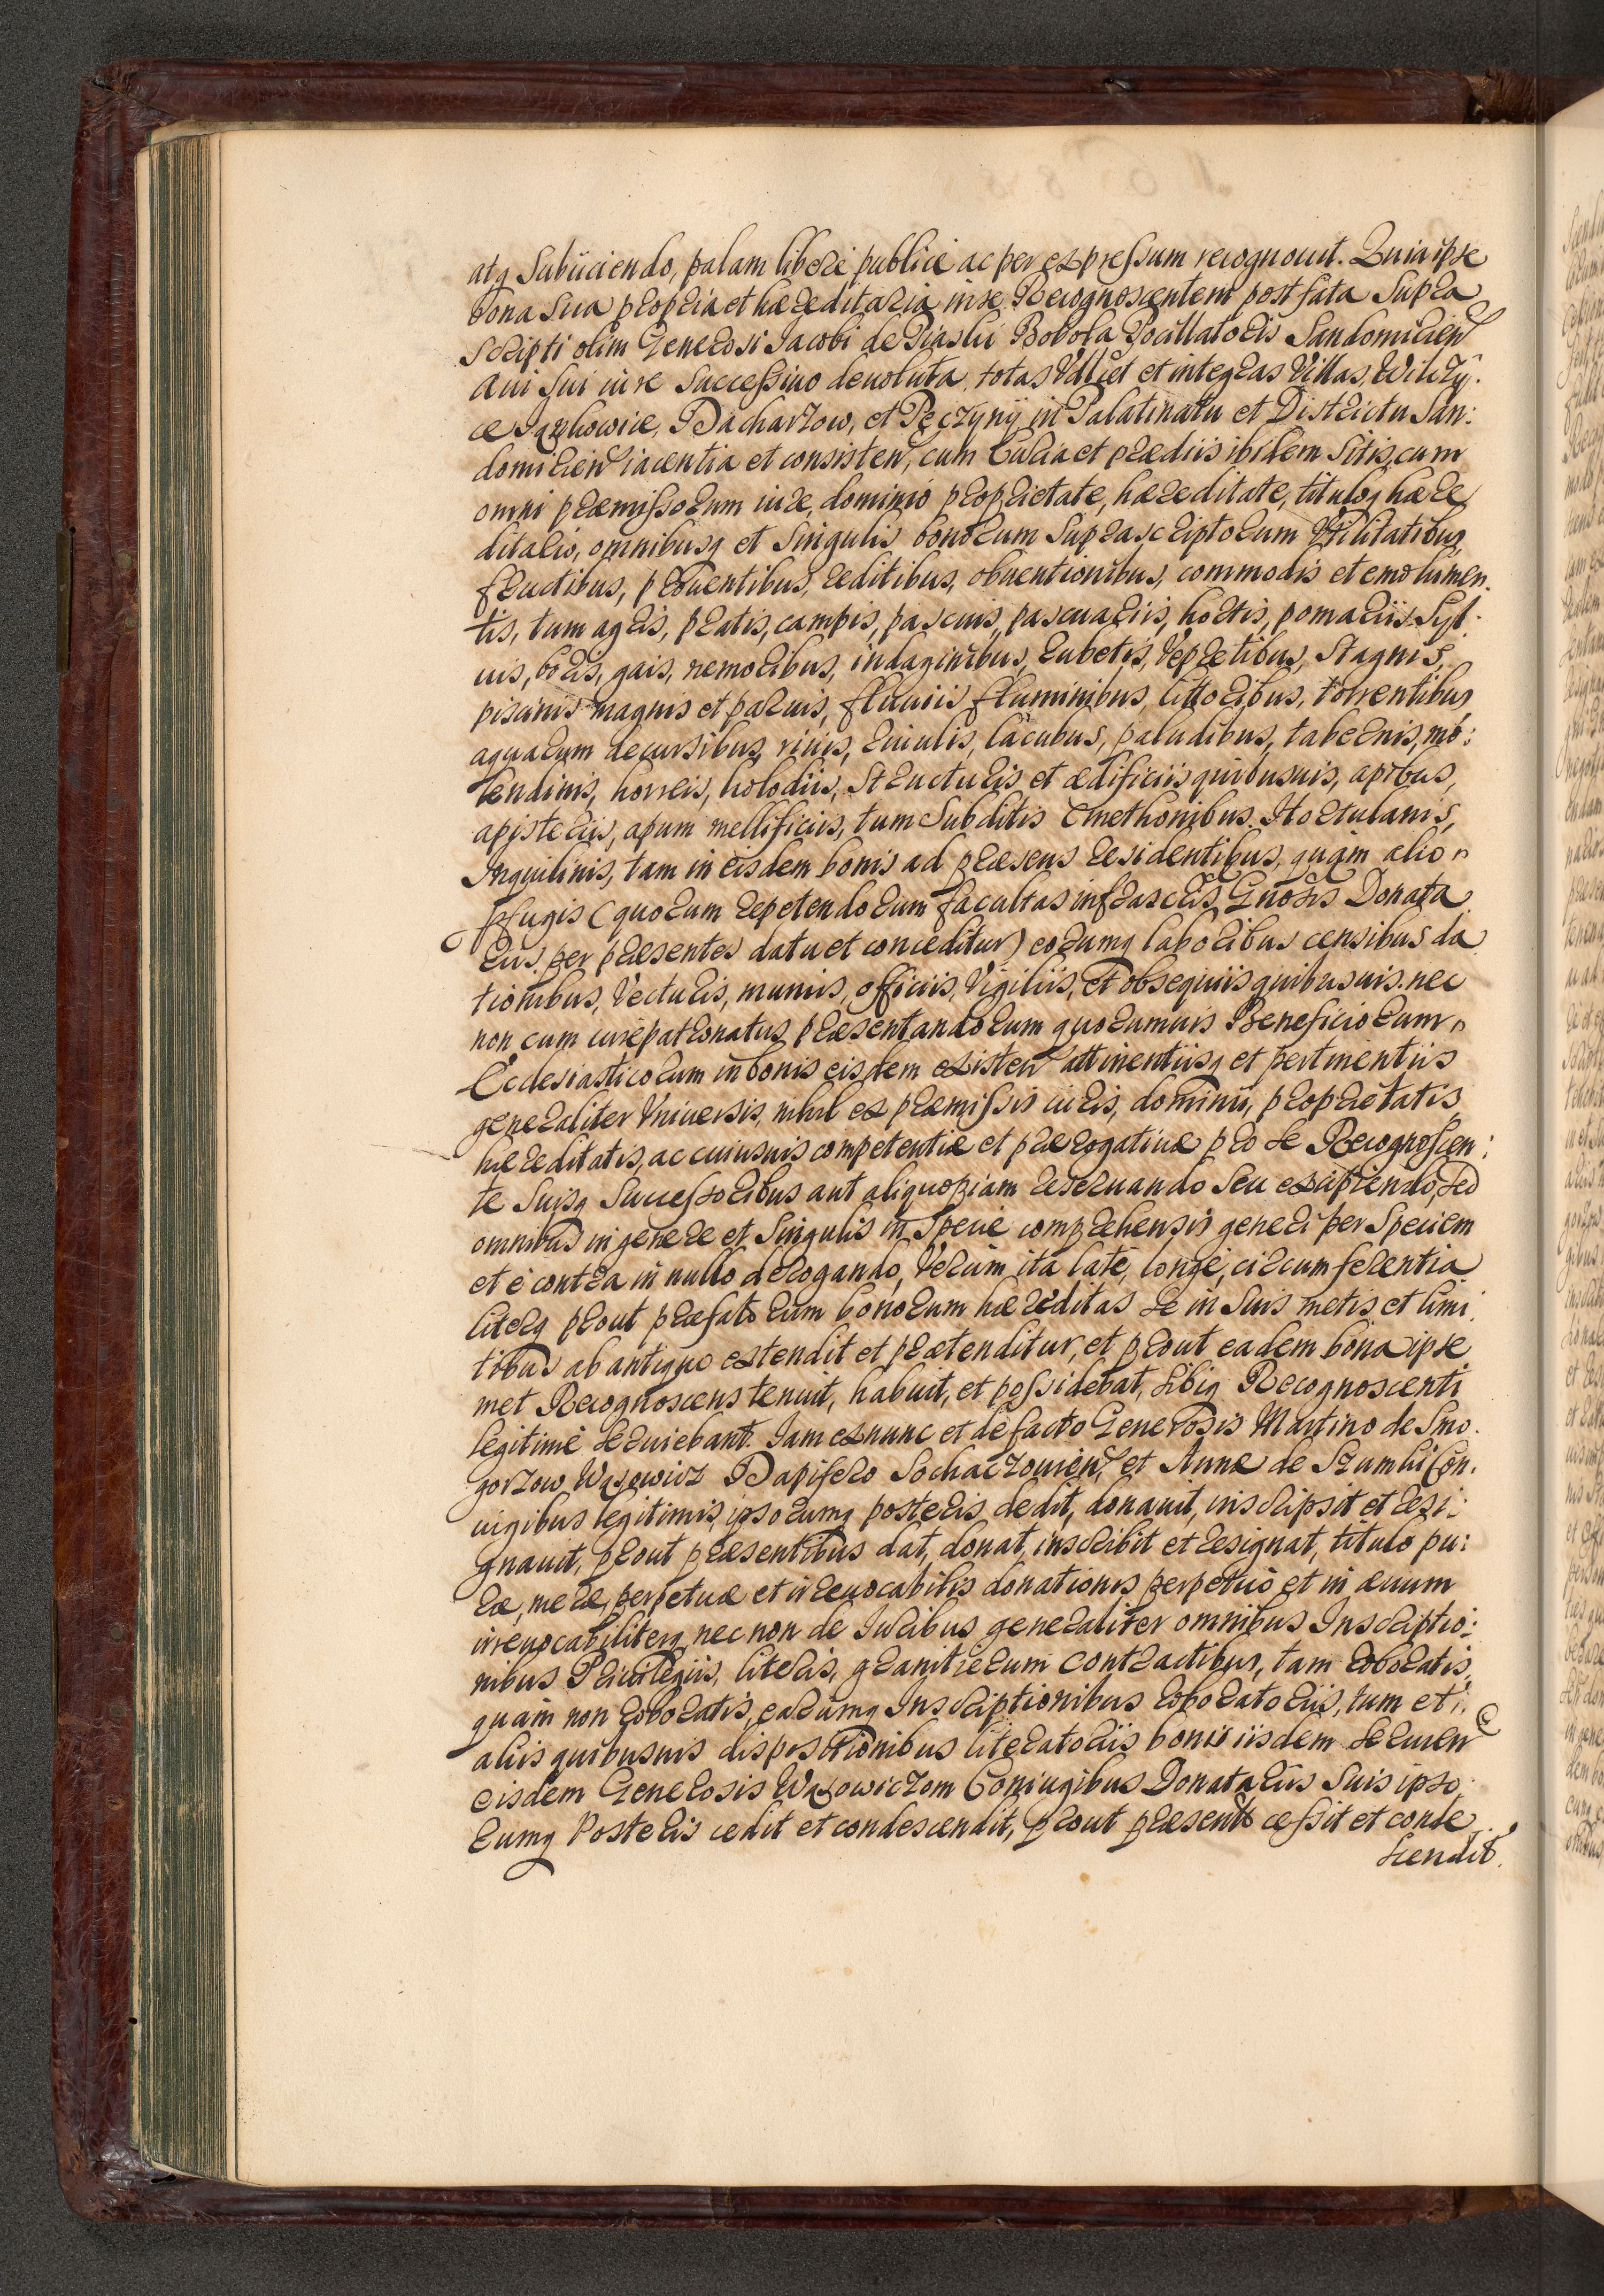 atq Subiiciendo, palam libere publice ac per expressum recognouit. Quia ipse
bona sua propria et haereditaria in se Recognoscentem post fata Supra
Scripti olim Generosi Jacobi de Piaski Bobola Pocillatoris Sandomirien
Aui sui iure Successiuo deuoluta, totas et integras Villas,
ce Jankowice, Bacharzow, et Pęczyny in Palatinatu et Districtu San:
domirien iacentia et consisten, cum Curia et praediis ibidem Sitis, cum
omni praemissorum iure, dominio proprietate, haereditate, tituloq haere
ditario, omnibusq et Singulis bonorum Suprascriptorum Vtilitatibus,
fructibus, prouentibus, reditibus, obuentionibus, commodis et emolumen.
tis, tum agris, pratis, campis, pascuis, pascuariis, hortis, pomariis Syl:
uis, boris, gais, nemoribus, indaginibus, rubetis, Vepretibus, Stagnis,
piscinis magnis et paruis, fluuiis fluminibus, littoribus, torrentibus
aquarum decursibus, riuis, riuulis, lacubus, paludibus, tabernis, mo:
lendinis, horreis, folodiis, Structuris et aedificiis quibusuis, apibus,
apisteriis, apum mellificiis, tum Subditis Cmethonibus. Hortulanis,
Inquilinis, tam in eisdem bonis ad praesens residentibus, quàm alio
pfugis (quorum repetendorum facultas infrascris Gnosis Donata
riis per praesentes datur et conceditur) eorumq laboribus censibus da
tionibus, Vecturis, muniis, officiis, Vigiliis, et obsequiis quibusuis. nec
non cum iure patronatus praesentandorum quorumuis Beneficiorum
Ecclesiasticorum in bonis eisdem existen attinentiisq et pertinentiis
generaliter Vniuersis, nihil ex praemissis iuris, dominii, proprietatis,
haereditatis, ac cuiusuis competentiae et praerogatiuae pro se Recognoscen:
te Suisq Successoribus aut aliquopiam reseruando Seu excipiendo, Sed
omnibus in genere et Singulis in Specie comprehensis generi per Speciem
et è contra in nullo derogando, Verùm ita latè, longè, circumferentia
literq prout praefatorum bonorum haereditas Se in Suis metis et limi
tibus ab antiquo extendit et praetenditur, et prout eadem bona ipse
met Recognoscens tenuit, habuit, et possidebat, Sibiq Recognoscenti
legitimè Seruiebant. Iam ex nunc et de facto Generosis Martino de Smo.
gorzow Wąsowicz Dapifero Sochaczouien, et Annae de Szumsk Con.
iugibus legitimis, ipsorumq posteris dedit, donauit, inscripsit et resi:
gnauit, prout praesentibus dat, donat, inscribit et resignat, titulo pu:
rae, merae, perpetuae et irreuocabilis donationis perpetuò et in aeuum
irreuocabiliterq nec non de Iuribus generaliter omnibus Inscriptio:
nibus Priuilegiis, literis, granitierum contractibus, tam roboratis,
quàm non roboratis, earumq Inscriptionibus roboratoriis, tum et
aliis quibusuis dispositionibus literatoriis bonis iisdem Seruien
eisdem Generosis Wąsowiczom Coniugibus Donatariis Suis ipso
rumq Posteris cedit et condescendit, prout praesentt cessit et conde
Scendit.